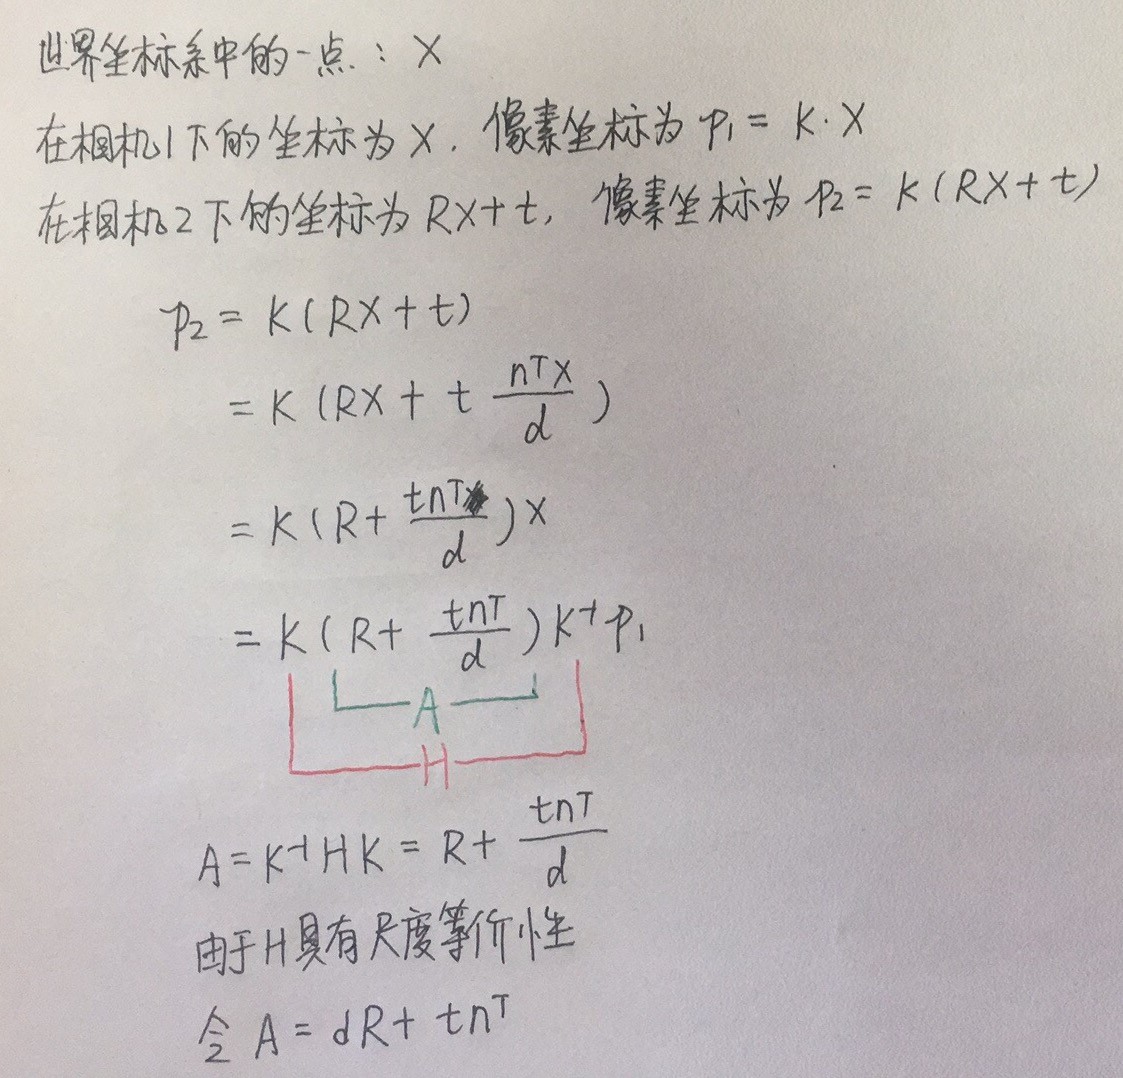 世界坐标系中的一点：X
在相机1下的坐标为X. 像素坐标为 p₁ = K·X
在相机2下的坐标为RX+t, 像素坐标为 p₂ = K(RX+t)
p₂ = K(RX+t)
= K(RX + t nᵀX/d)
= K(R + tnᵀ/d)X
= K(R + tnᵀ/d)K⁻¹p₁
A
H
A = K⁻¹HK = R + tnᵀ/d
由于H具有尺度等价性
令 A = dR + tnᵀ